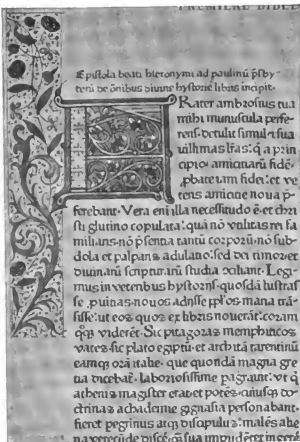 PREMIERE BIBLE
Epistola beati hieronymi ad paulinū p̄sby-
terū de ōnibus diuine hystorie libris incipit.
FRater ambrosius tua
mihi munuscula perfe-
rens. detulit simul ⁊ sua
uissimas lr̄as: q̄ a prin
cipio amicitiarū fidē.
ꝓbate iam fidei: et ve
teris amicitie noua ꝓ-
ferebant. Vera eni illa necessitudo ē. et chri
sti glutino copulata: quā nō vtilitas rei fa
miliaris. nō p̄sentia tantū corporū. nō sub-
dola et palpans adulatio: sed dei timor. et
diuinarū scripturarū studia ciliant. Legi-
mus in veteribus hystorijs. quosdā lustras
se ꝓuincias. nouos adisse pplos maria trā-
sisse: ut eos quos ex libris nouerāt: coram
qq̄ viderēt. Sic pitagoras memphiticos
vates. sic plato egiptū: et architā tarentinū
eamq̄ orā italie. que quondā magna gre
tia dicebat̄. laboriosissime pagrauit: vt q̄
athenis magister erat. et potēs. cuiusq̄ do-
ctrinas achademie gignasia personabant.
fieret peregrinus atq̄ discipulus: malēs alie
na verecūde discē. q̄ sua impudēter ingerere